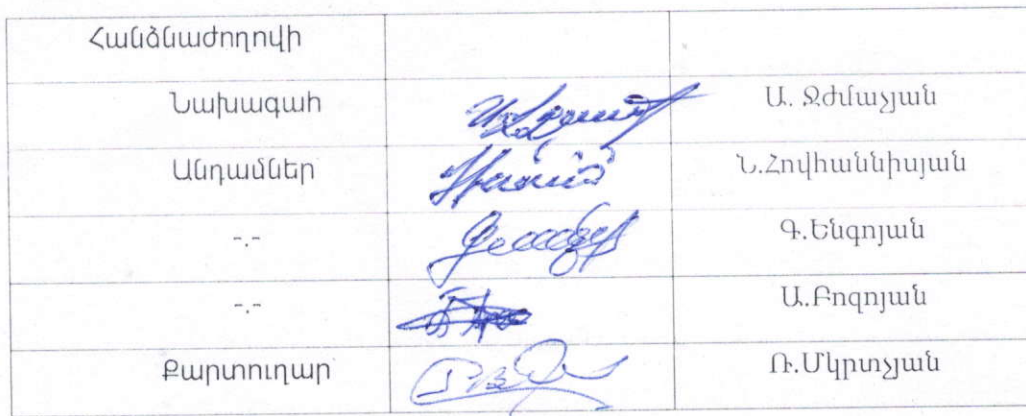 Հանձնաժողովի
Նախագահ Ա. Ջժմաչյան
Անդամներ Ն.Հովհաննիսյան
-.- Գ.Ենգոյան
-.- Ա.Բոզոյան
Քարտուղար Ռ.Մկրտչյան